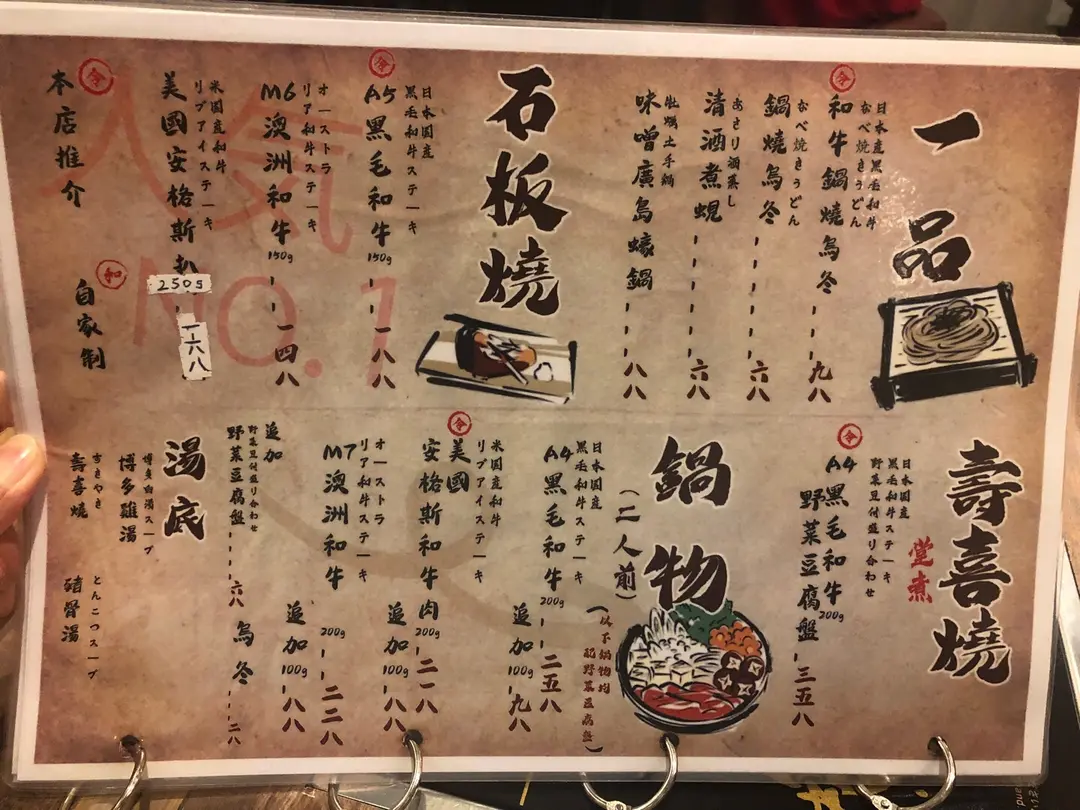 一品
令
日本国産黒毛和牛
なべ焼きうどん
和牛鍋燒烏冬---九八
なべ焼きうどん
鍋燒烏冬----六八
あさり酒蒸し
清酒煮蜆----六八
牡蠣土手鍋
味噌廣島蠔鍋---八八
石板燒
令
日本国産
黒毛和牛ステーキ
A5黑毛和牛 150g --一八八
オーストラ
リア和牛ステーキ
M6澳洲和牛 150g --一四八
米国産和牛
リブアイステーキ
美國安格斯扒
250g
一六八
令
本店推介
和
自家制
人気
NO.1
壽喜燒
堂煮
令
日本国産
黒毛和牛ステーキ
野菜豆付盛り合わせ
A4黑毛和牛 200g
野菜豆腐盤-三五八
鍋物
(二人前)
(以下鍋物均
配野菜豆腐盤)
日本国産
黒毛和牛ステーキ
A4黑毛和牛 200g -二五八
追加 100g -九八
令
米国産和牛
リブアイステーキ
美國
安格斯和牛肉 200g -二一八
追加 100g -八八
オーストラ
リア和牛ステーキ
M7澳洲和牛 200g --二二八
追加 100g -八八
追加
野菜豆付盛り合わせ
野菜豆腐盤----六八
烏冬----二八
湯底
博多白湯スープ
博多雞湯
すきやき
壽喜燒
とんこつスープ
豬骨湯